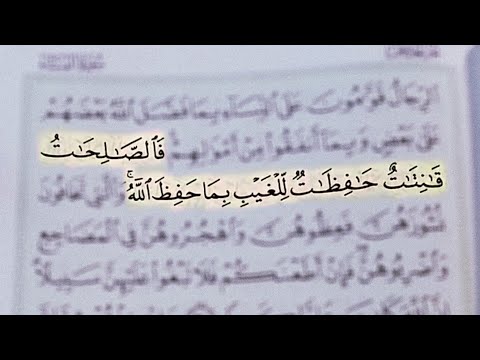 سُورَةُ النِّسَاءِ
ٱلرِّجَالُ قَوَّٰمُونَ عَلَى ٱلنِّسَآءِ بِمَا فَضَّلَ ٱللَّهُ بَعْضَهُمْ
عَلَىٰ بَعْضٍ وَبِمَآ أَنفَقُواْ مِنْ أَمْوَٰلِهِمْ فَٱلصَّٰلِحَٰتُ
قَٰنِتَٰتٌ حَٰفِظَٰتٌ لِّلْغَيْبِ بِمَا حَفِظَ ٱللَّهُۚ وَٱلَّٰتِي تَخَافُونَ
نُشُوزَهُنَّ فَعِظُوهُنَّ وَٱهْجُرُوهُنَّ فِي ٱلْمَضَاجِعِ
وَٱضْرِبُوهُنَّۖ فَإِنْ أَطَعْنَكُمْ فَلَا تَبْغُواْ عَلَيْهِنَّ سَبِيلًاۗ